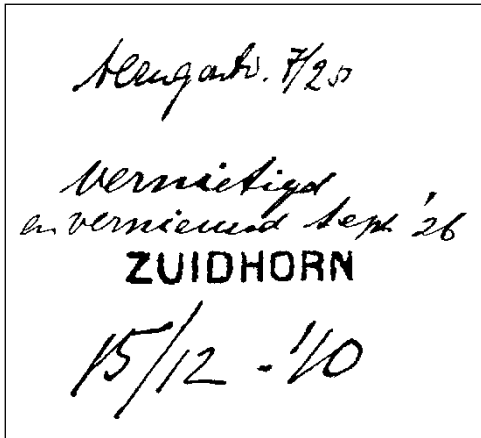 terugontv. 7/25
vernietigd
en vernieuwd Sept '26
ZUIDHORN
15/12 - '10